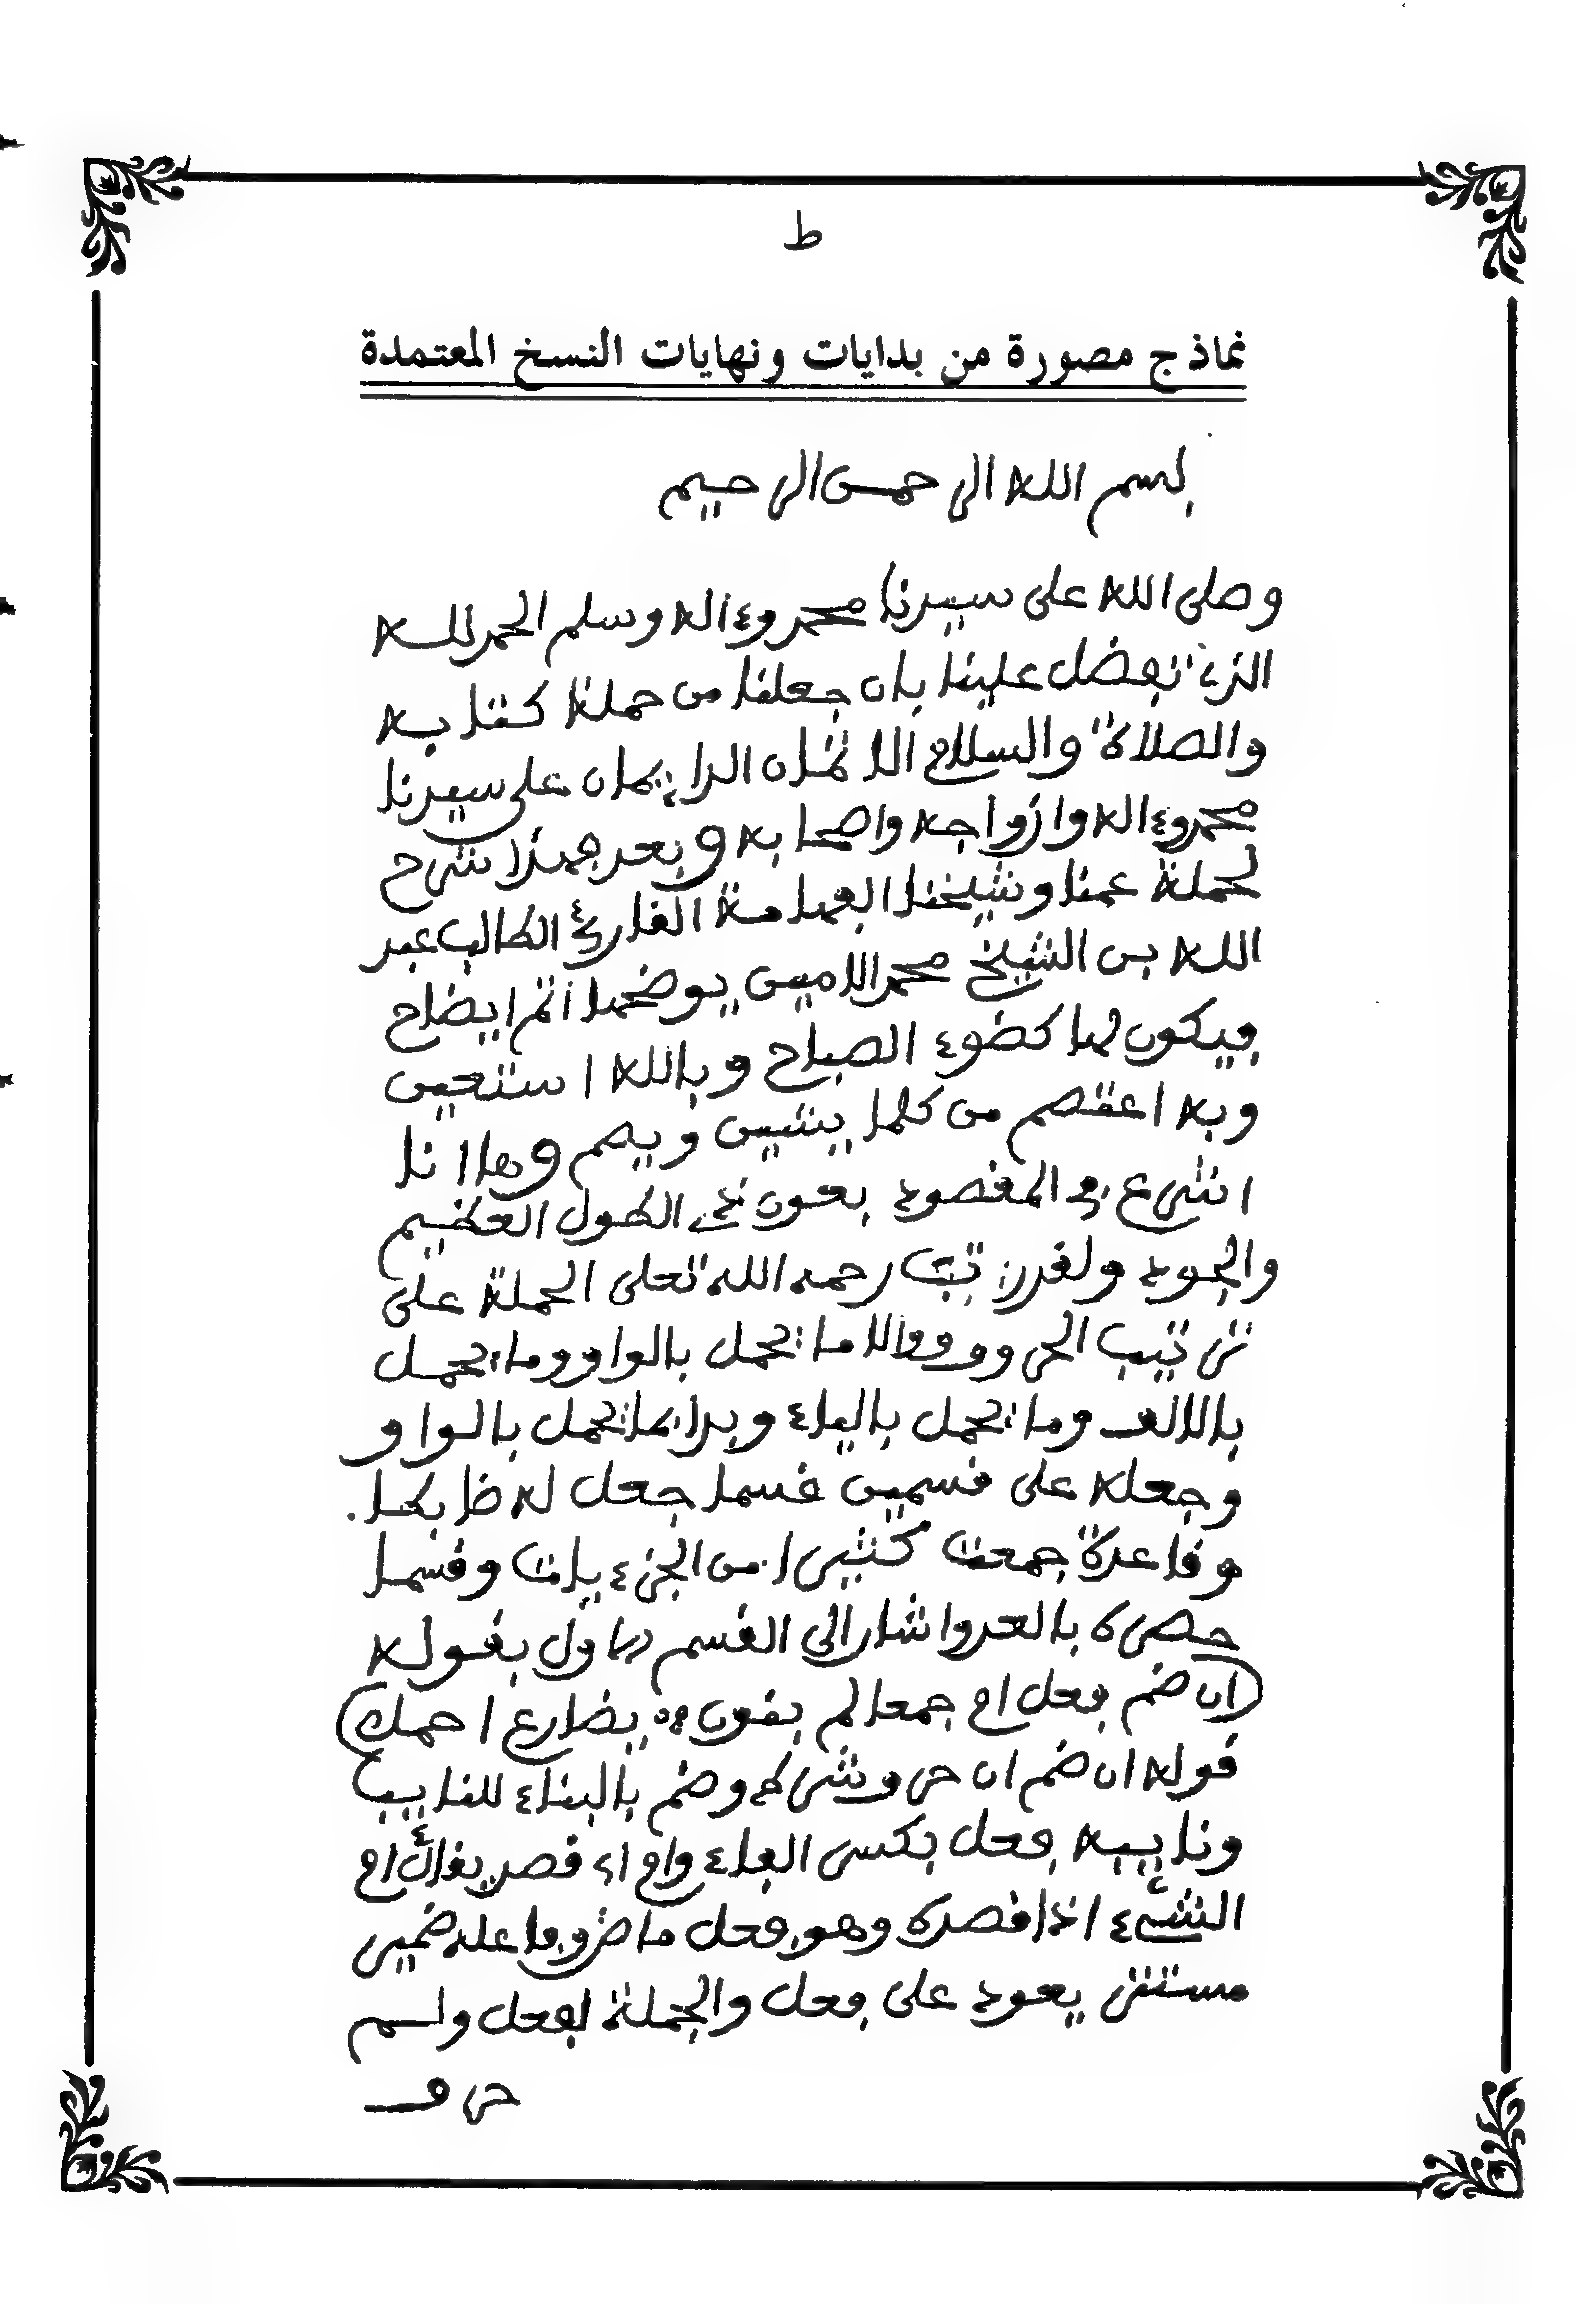 ط
نماذج مصورة من بدايات ونهايات النسخ المعتمدة
بسم الله الرحمن الرحيم
وصلى الله على سيدنا محمد وءاله وسلم الحمد لله
الذى تفضل علينا بان جعلنا من حملة كتابه
والصلاة والسلام الا تمان الدايمان على سيدنا
محمد وءاله وازواجه واصحابه وبعد فهذا شرح
لحملة عمنا وشيخنا الفهامة القارئ الطالب عبد
الله بن الشيخ محمد الامين يوضحها أتم ايضاح
فيكون لها كضوء الصباح وبالله استعين
وبه اعتصم من كلما يشين ويصم وها انا
اشرع فى المقصود بعون ذى الطول العظيم
والجود ولقد رتب رحمه الله تعلى الحملة على
ترتيب الحروف والا ما يحمل بالواو وما يحمل
بالالف وما يحمل بالياء وبدا بما يحمل بالواو
وجعله على قسمين قسما جعل له ضابطا
وقاعدة جمعت كثيرا من الجزءيات وقسما
حصره بالعد واشار الى القسم الاول بقوله
(ان ضم فعل ام جمعا لم بنون يضارع احمل)
قوله ان ضم ان حرف شرط وضم بالبناء للنايب
ونايبه فعل بكسر الفاء وام اى قصد يقال أم
الشىء اذا قصده وهو فعل ماض وفاعله ضمير
مستتر يعود على فعل والجملة لفعل واسم
حرف